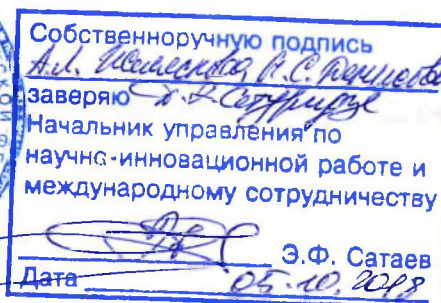 Собственноручную подпись
А.Л.
заверяю
Начальник управления по
научно-инновационной работе и
международному сотрудничеству
Э.Ф. Сатаев
Дата 05.10.2018